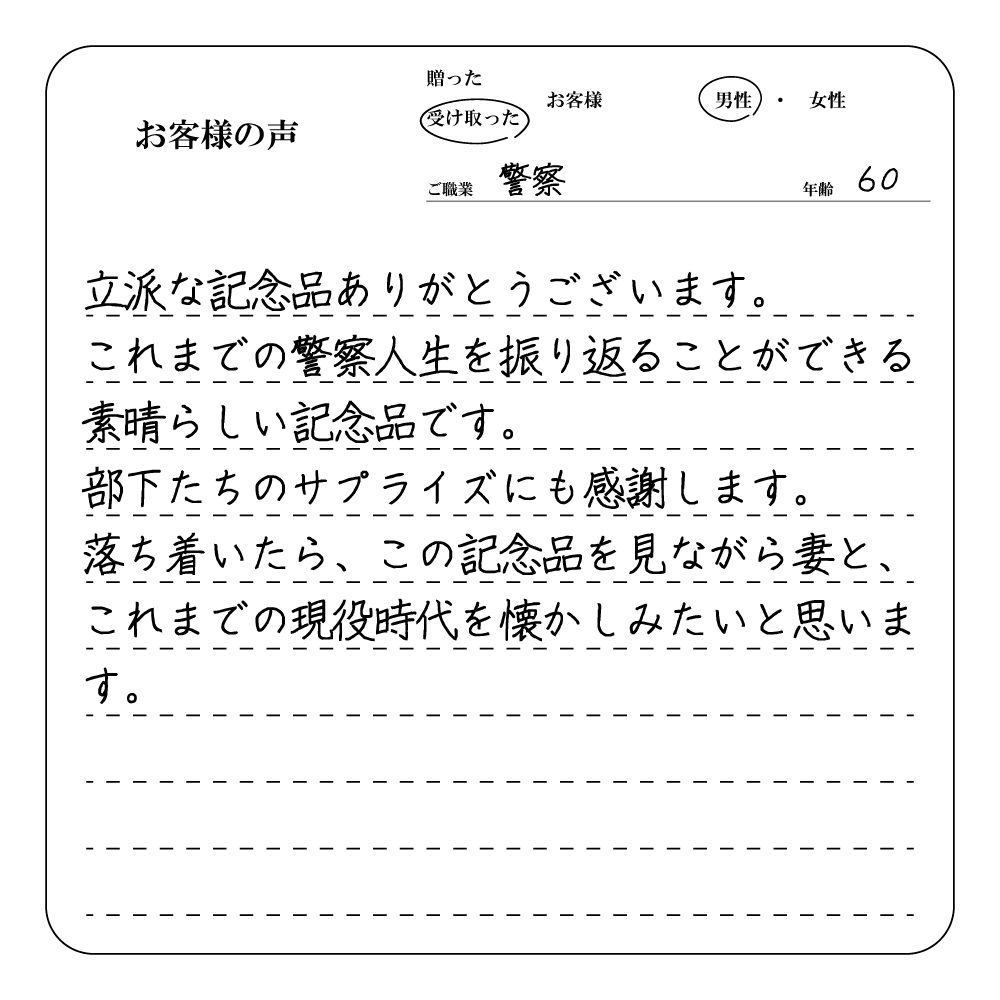 贈った
受け取った
お客様
男性 ・ 女性
お客様の声
ご職業 警察 年齢 60
立派な記念品ありがとうございます。
これまでの警察人生を振り返ることができる
素晴らしい記念品です。
部下たちのサプライズにも感謝します。
落ち着いたら、この記念品を見ながら妻と、
これまでの現役時代を懐かしみたいと思いま
す。